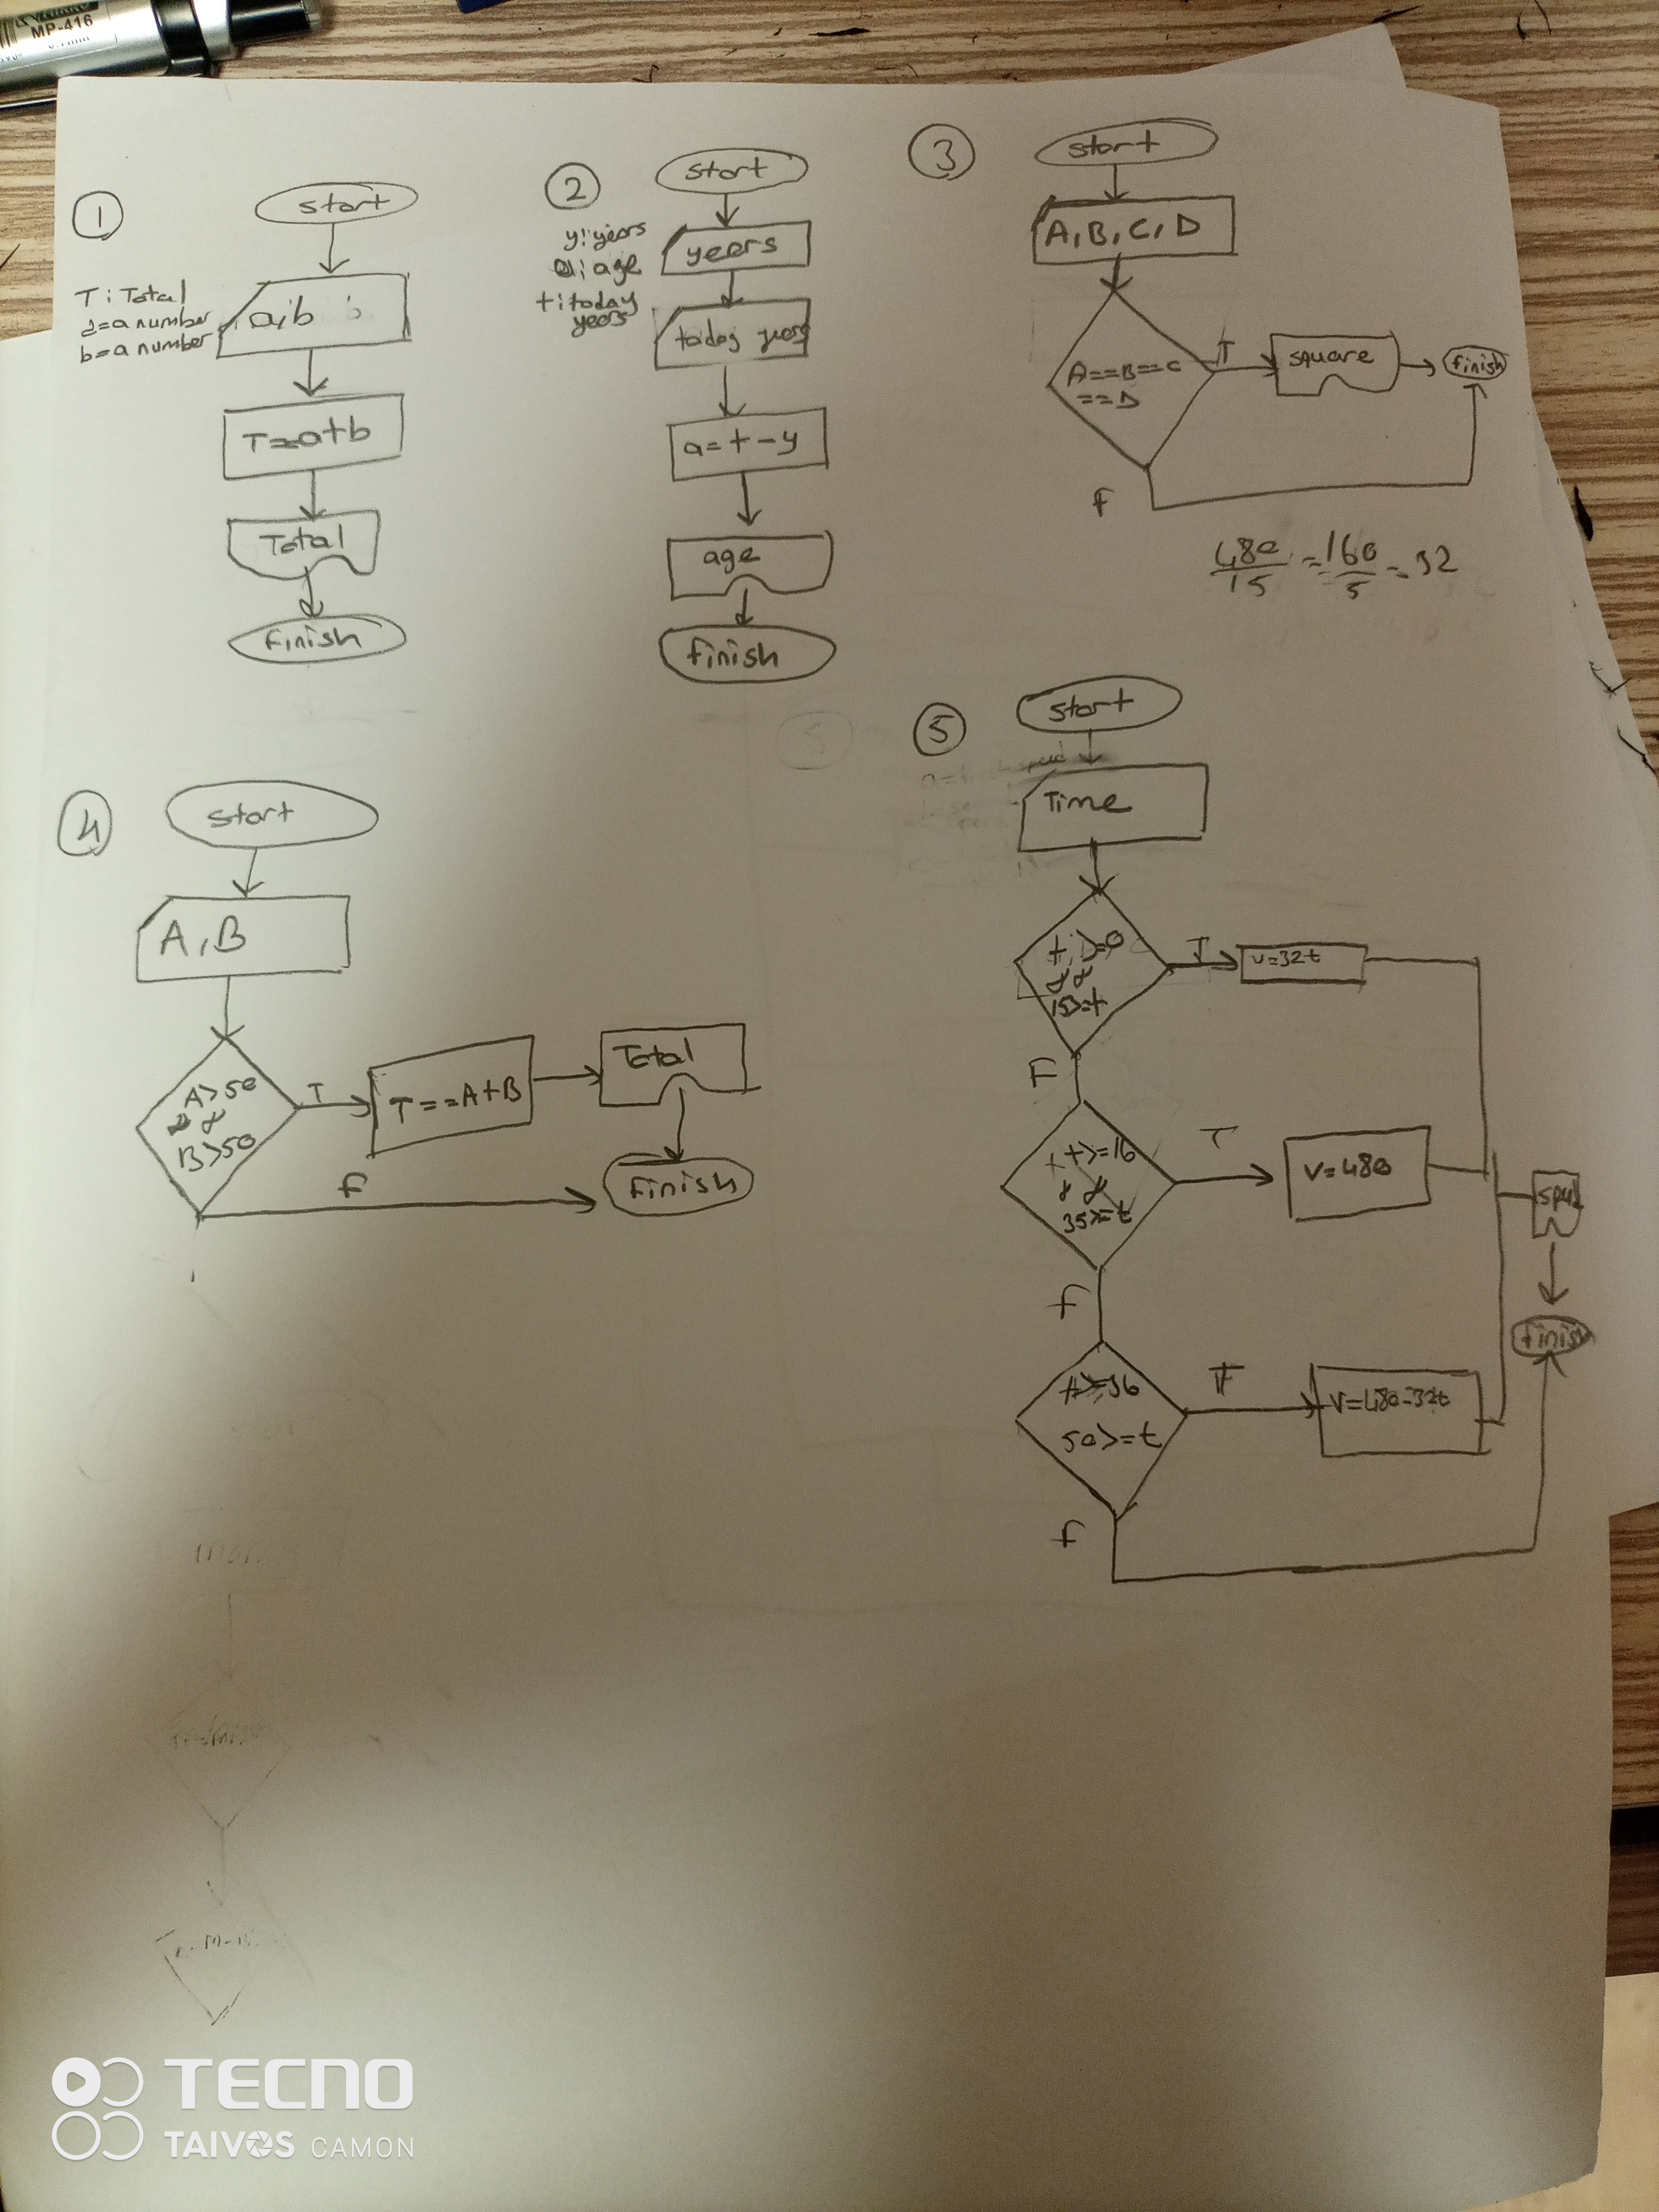 MP-416
1
start
T : Total
a=a number
b=a number
a,b
T=a+b
Total
finish
2
start
y: years
a: age
t: today
years
years
today years
a=t-y
age
finish
3
start
A, B, C, D
A==B==C
==D
T
square
finish
F
480/15 = 160/5 = 32
4
start
A, B
A>50
&&
B>50
T
T==A+B
Total
F
finish
5
start
Time
t>=0
&&
15>=t
T
v=32t
F
t>=16
&&
35>=t
T
V=480
F
t>=36
50>=t
T
V=480-32t
finish
F
TECNO
TAIVOS CAMON